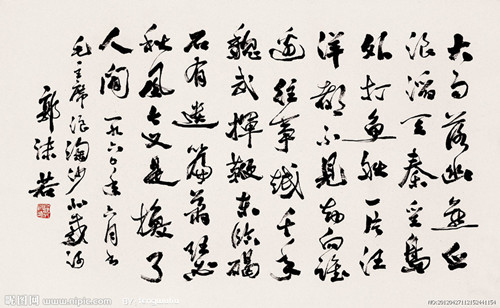 大雨落幽燕白
浪滔天秦皇島
外打魚船一片汪
洋都不見知向誰
邊往事越千年
魏武揮鞭東臨碣
石有遺篇蕭瑟
秋風今又是換了
人間 一九六〇年六月書
毛主席浪淘沙北戴河
郭沫若
昵图网 www.nipic.com
NO:20120427112152441154